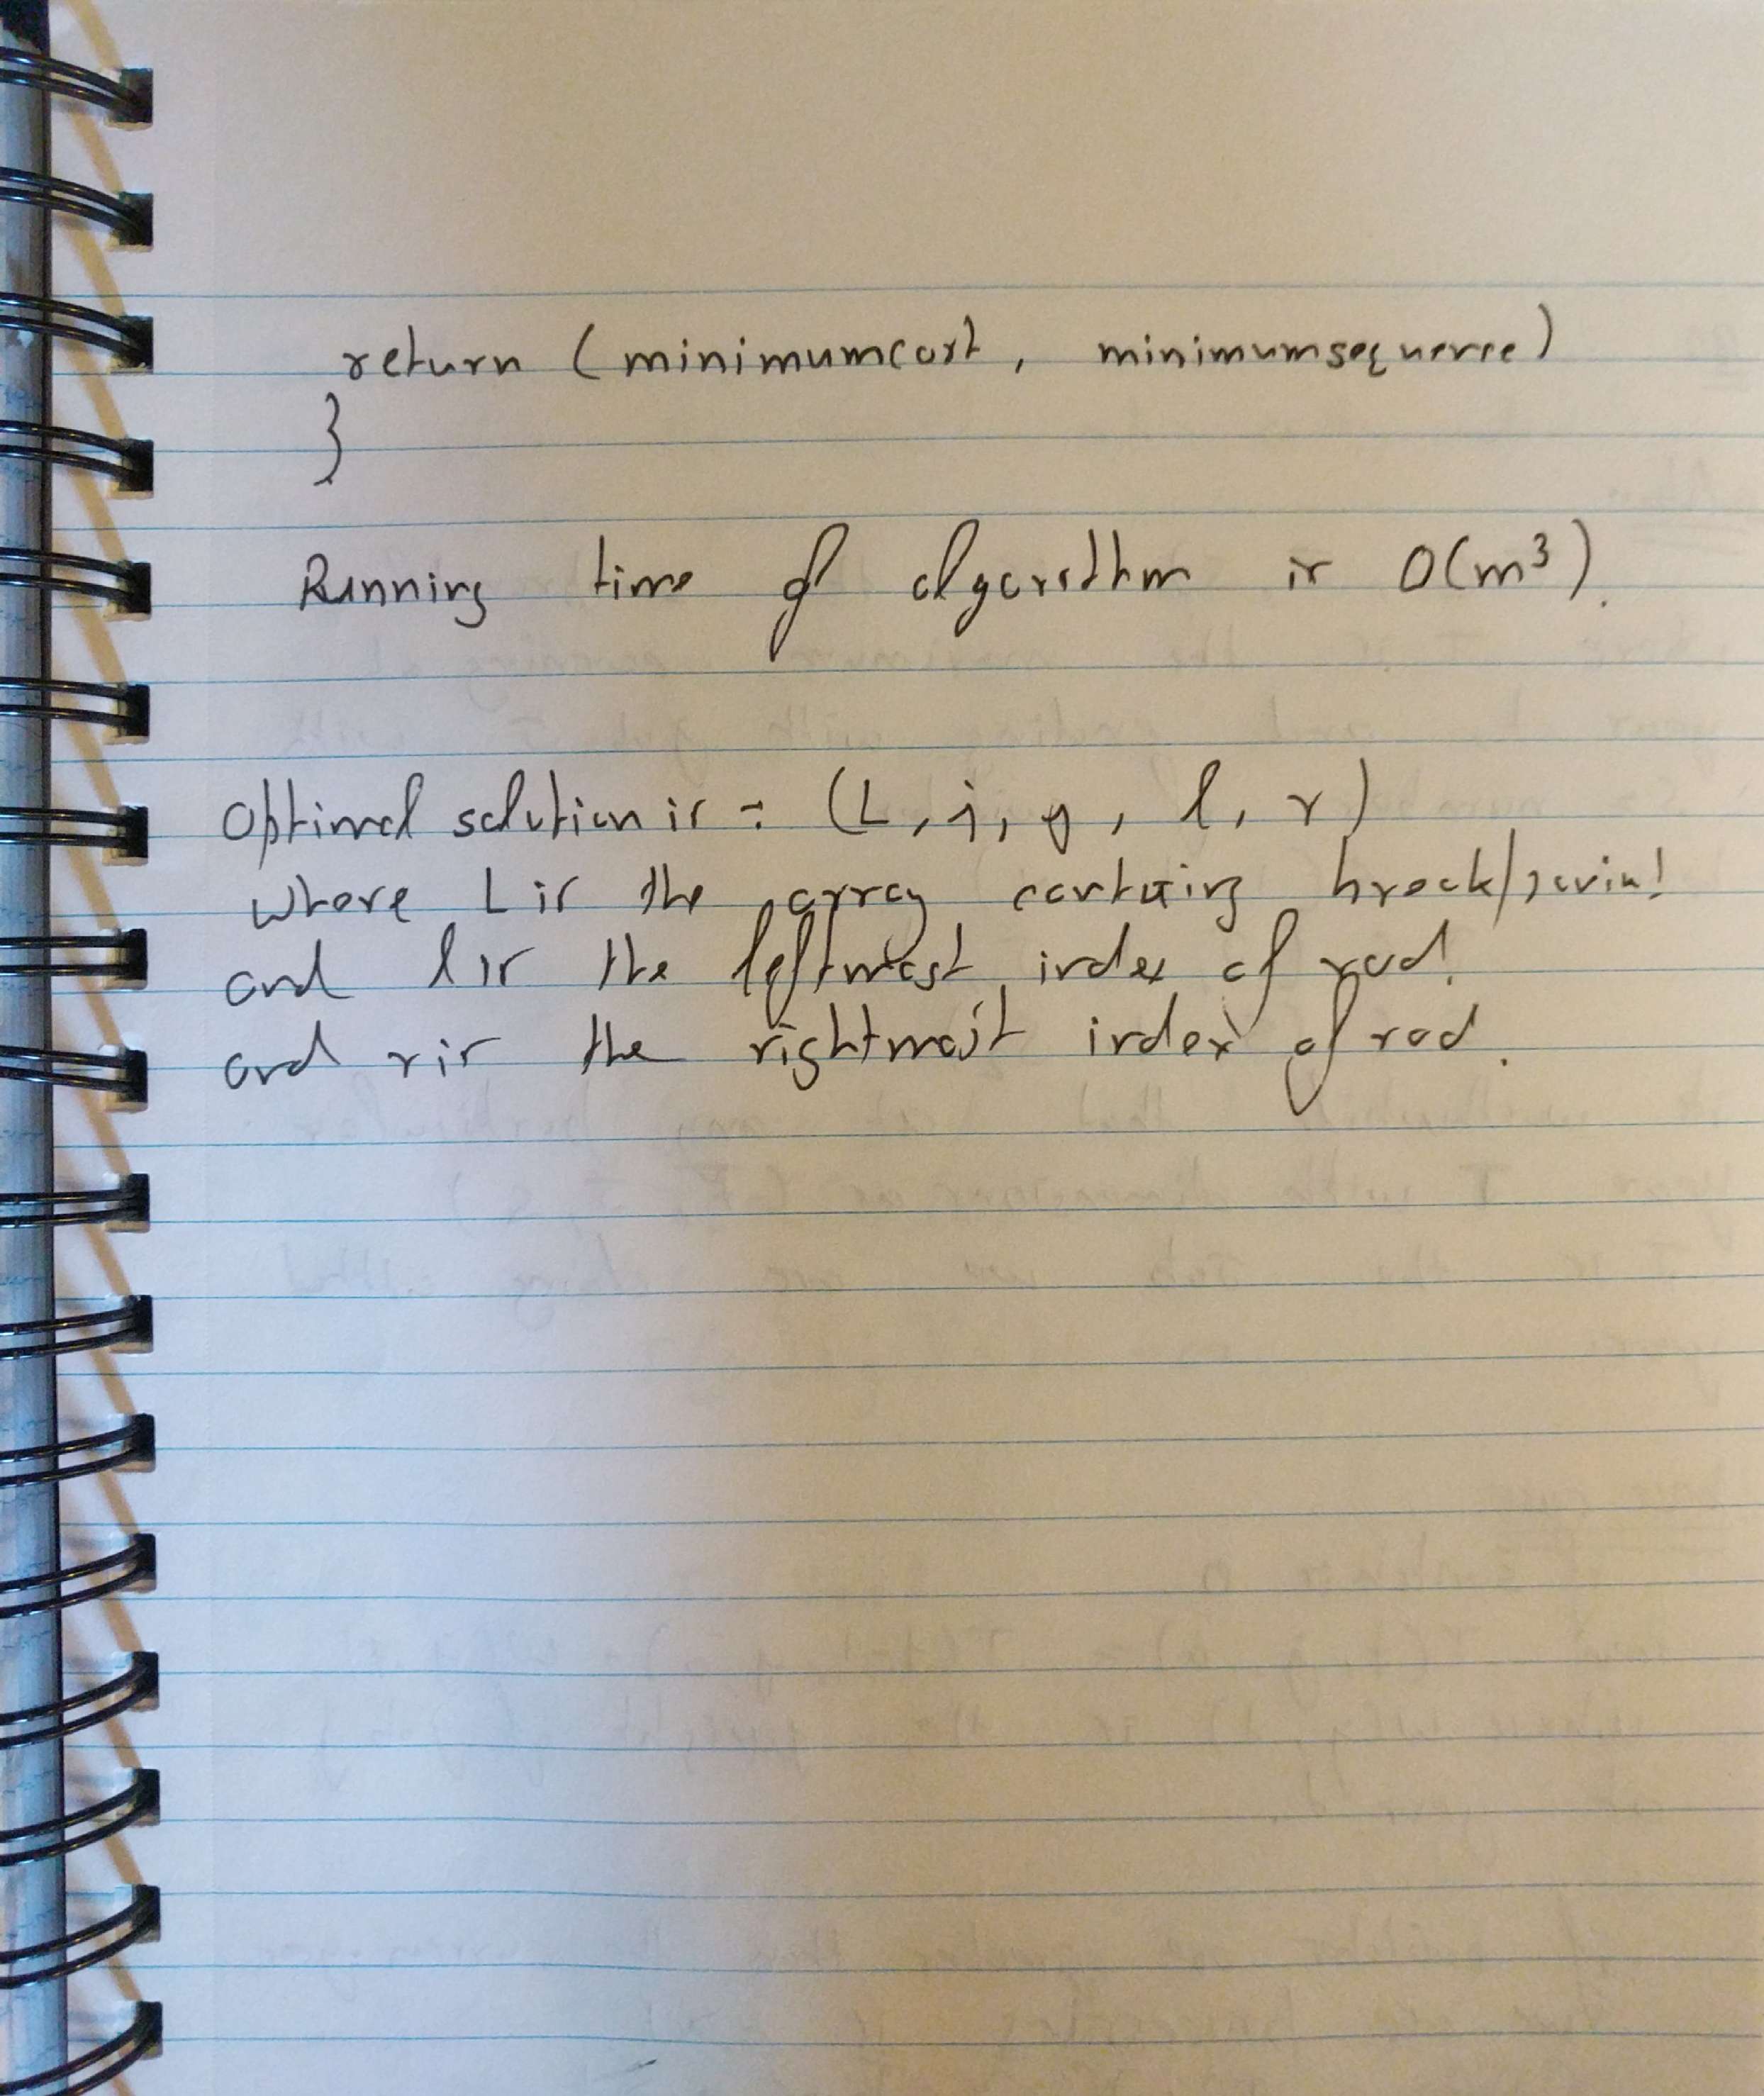 return (minimumcost, minimumsequence)
}
Running time of algorithm is O(m³).
Optimal solution is = (L, i, j, l, r)
where L is the array containing
and l is the leftmost index of rod.
and r is the rightmost index of rod.